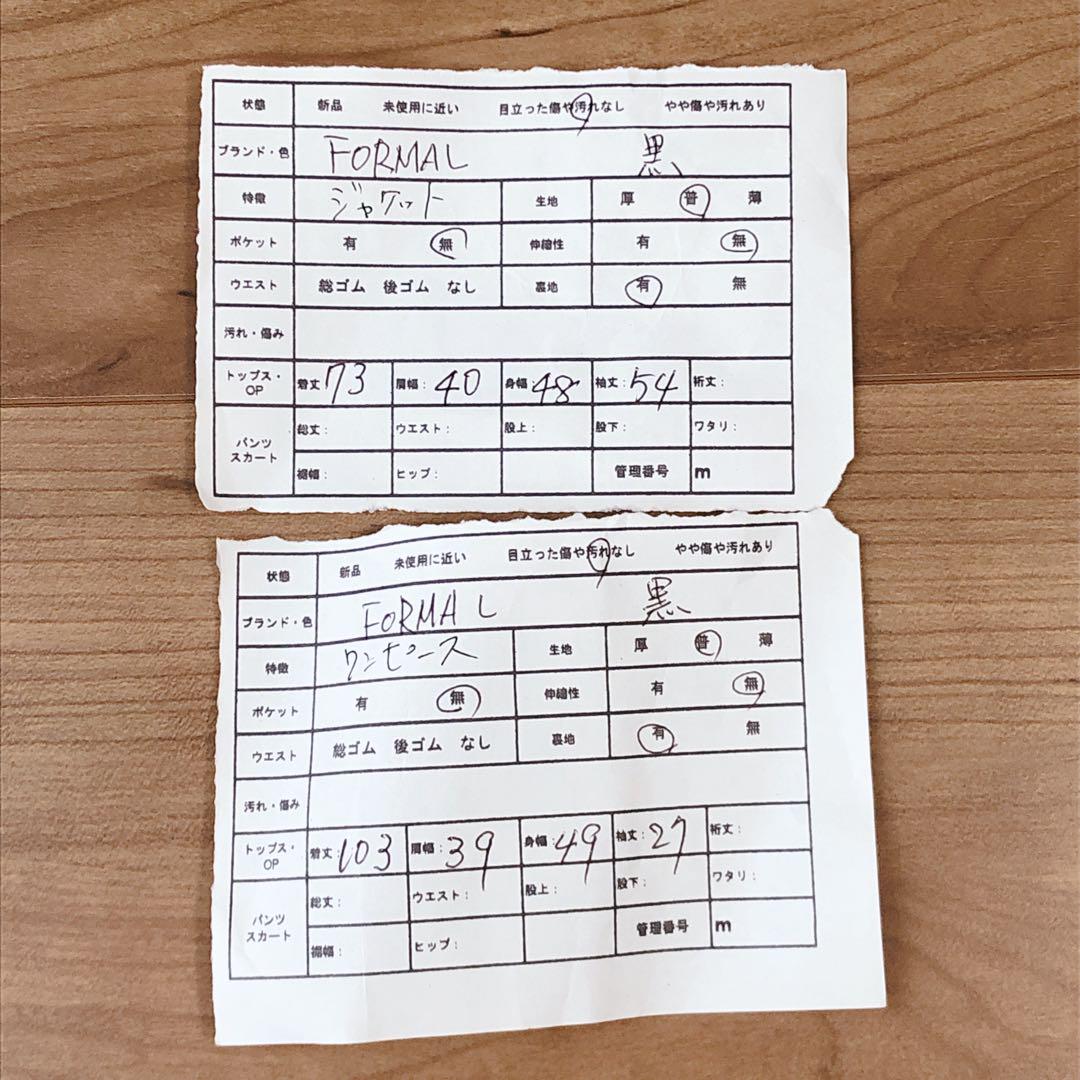 状態 新品 未使用に近い 目立った傷や汚れなし やや傷や汚れあり
ブランド・色 FORMAL 黒
特徴 ジャケット 生地 厚 普 薄
ポケット 有 無 伸縮性 有 無
ウエスト 総ゴム 後ゴム なし 裏地 有 無
汚れ・傷み
トップス・OP 着丈:73 肩幅:40 身幅:48 袖丈:54 裄丈:
パンツ スカート 総丈: ウエスト: 股上: 股下: ワタリ:
裾幅: ヒップ: 管理番号 m
状態 新品 未使用に近い 目立った傷や汚れなし やや傷や汚れあり
ブランド・色 FORMAL 黒
特徴 ワンピース 生地 厚 普 薄
ポケット 有 無 伸縮性 有 無
ウエスト 総ゴム 後ゴム なし 裏地 有 無
汚れ・傷み
トップス・OP 着丈:103 肩幅:39 身幅:49 袖丈:27 裄丈:
パンツ スカート 総丈: ウエスト: 股上: 股下: ワタリ:
裾幅: ヒップ: 管理番号 m